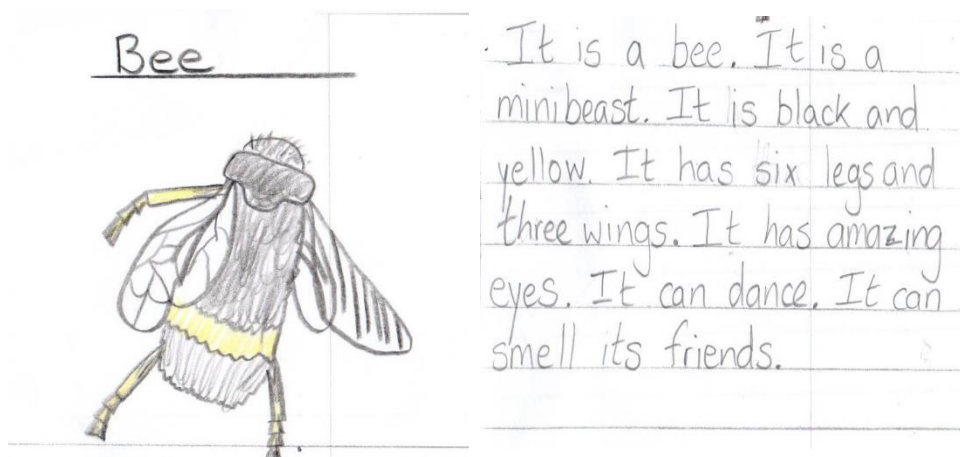 Bee
It is a bee. It is a
minibeast. It is black and
yellow. It has six legs and
three wings. It has amazing
eyes. It can dance. It can
smell its friends.